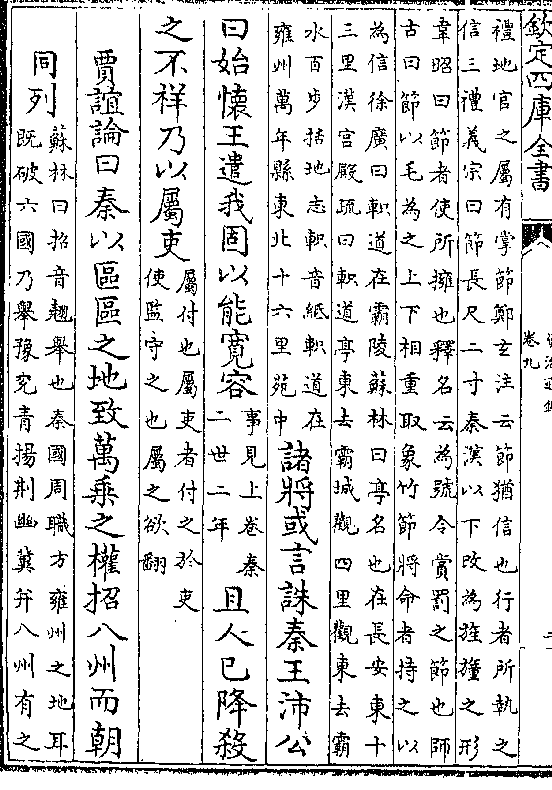 欽定四庫全書
卷九
禮地官之屬有掌節鄭玄注云節猶信也行者所執之
信三禮義宗曰節長尺二寸秦漢以下改為旌旛之形
韋昭曰節者使所擁也釋名云為號令賞罰之節也師
古曰節以毛為之上下相重取象竹節將命者持之以
為信徐廣曰軹道在霸陵蘇林曰亭名也在長安東十
三里漢宫殿疏曰軹道亭東去霸城觀四里觀東去霸
水百步括地志軹音紙軹道在
雍州萬年縣東北十六里苑中
諸將或言誅秦王沛公
曰始懷王遣我固以能寛容
事見上卷秦
二世二年
且人已降殺
之不祥乃以屬吏
屬付也屬吏者付之於吏
使監守之也屬之欲翻
賈誼論曰秦以區區之地致萬乘之權招八州而朝
同列
蘇林曰招音翹舉也秦國周職方雍州之地耳
既破六國乃舉豫兖青揚荆幽冀并八州有之